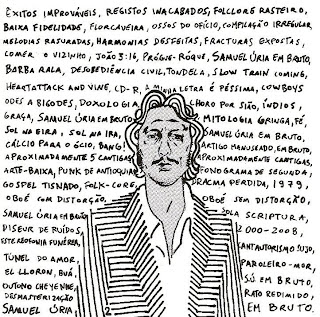 ÊXITOS IMPROVÁVEIS, REGISTOS INACABADOS, FOLCLORE RASTEIRO,
BAIXA FIDELIDADE, FLORCAVEIRA, OSSOS DO OFÍCIO, COMPILAÇÃO IRREGULAR,
MELODIAS RASURADAS, HARMONIAS DESFEITAS, FRACTURAS EXPOSTAS,
COMER O VIZINHO, JOÃO 3:16, PRÓGUE-RÓQUE, SAMUEL ÚRIA EM BRUTO,
BARBA RALA, DESOBEDIÊNCIA CIVIL, TONDELA, SLOW TRAIN COMING,
HEARTATTACK AND VINE, CD-R, A MINHA LETRA É PÉSSIMA, COWBOYS
ODES A BIGODES, DOXOLOGIA CHORO POR SIÃO, ÍNDIOS,
GRAÇA, SAMUEL ÚRIA EM BRUTO MITOLOGIA GRINGA, FÉ,
SOL NA EIRA, SOL NA IRA, SAMUEL ÚRIA EM BRUTO,
CÁLCIO PARA O ÓCIO, BANG! ARTIGO MANUSEADO, EM BRUTO,
APROXIMADAMENTE 5 CANTIGAS APROXIMADAMENTE CANTIGAS,
ARTE-BAIXA, PUNK DE ANTIQUÁRIO FONOGRAMA DE SEGUNDA,
GOSPEL TISNADO, FOLK-CORE, DRACMA PERDIDA, 1979,
OBOÉ COM DISTORÇÃO, OBOÉ SEM DISTORÇÃO,
SAMUEL ÚRIA EM BRUTO SOLA SCRIPTURA,
DISEUR DE RUÍDOS, 2000-2008,
ESTEREOFONIA FUNÉREA, CANTAUTORISMO SUJO,
TÚNEL DO AMOR, PAROLEIRO-MOR,
EL LLORON, BUÁ, SÓ EM BRUTO,
OUTONO CHEYENNE, RATO REDIMIDO,
DESMASTERIZAÇÃO EM BRUTO.
SAMUEL ÚRIA,